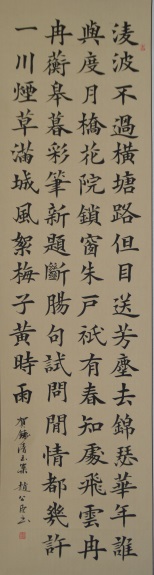 淩波不過橫塘路但目送芳塵去錦瑟華年誰
與度月橋花院鎖窗朱戶祇有春知處飛雲冉
冉蘅皋暮彩筆新題斷腸句試問閒情都幾許
一川煙草滿城風絮梅子黃時雨
賀鑄青玉案 趙公